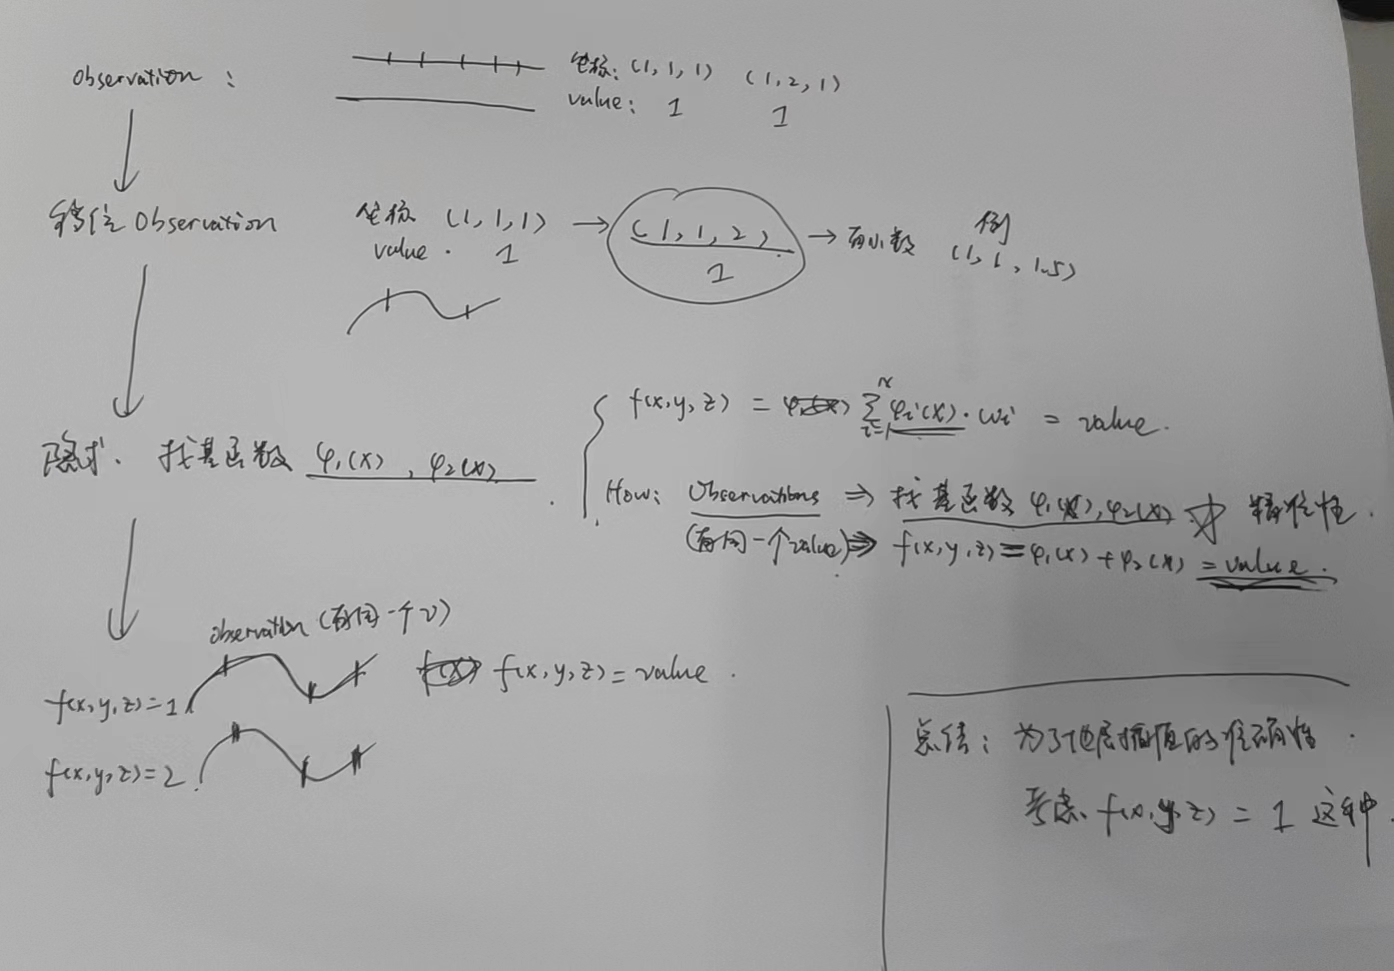 observation :
坐标: (1, 1, 1) (1, 2, 1)
value: 1 1
错位 Observation
坐标 (1, 1, 1) → (1, 1, 2) → 有小数 例 (1, 1, 1.5)
value. 1 1
隐式. 找基函数 φ₁(x), φ₂(x).
f(x, y, z) = ∑ᵢ₌₁ⁿ φᵢ(x)·wᵢ = value.
How: Observations ⇒ 找基函数 φ₁(x), φ₂(x) ☆ 精准性.
(有同一个value) ⇒ f(x, y, z) = φ₁(x) + φ₂(x) = value.
observation (有同一个v)
f(x, y, z) = 1
f(x, y, z) = value.
f(x, y, z) = 2.
总结: 为了地层插值的准确性.
考虑 f(x, y, z) = 1 这种.